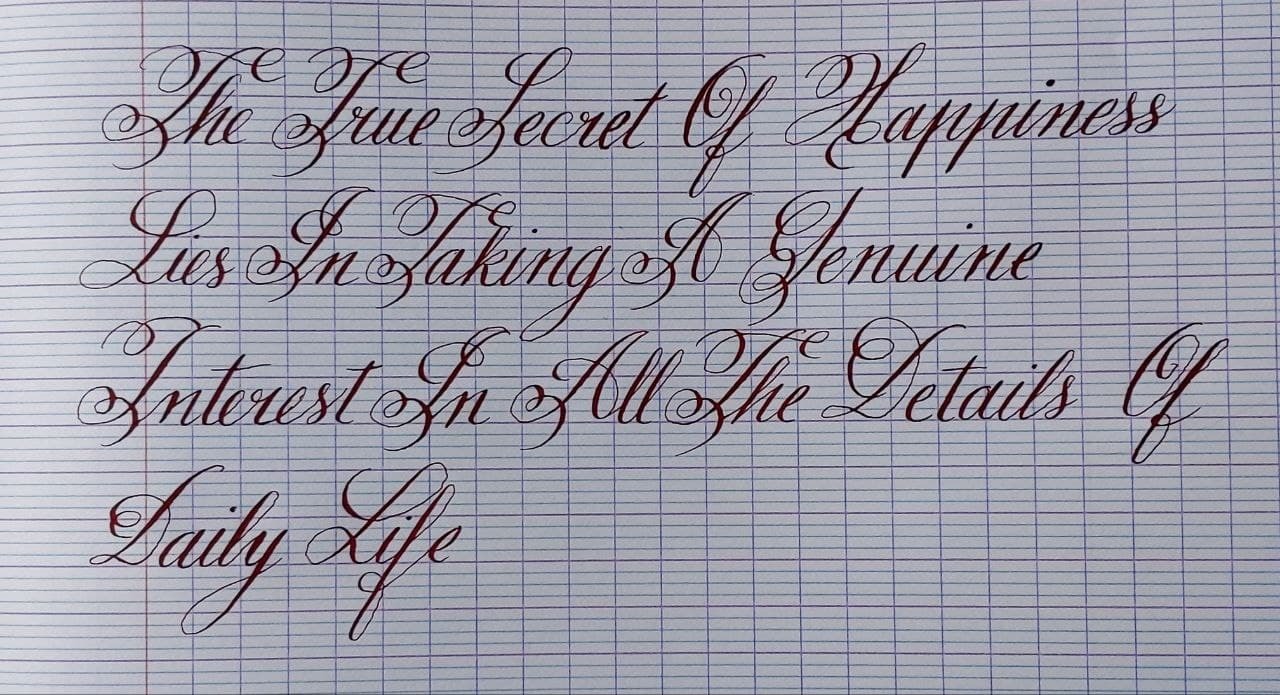 The True Secret Of Happiness
Lies In Taking A Genuine
Interest In All The Details Of
Daily Life